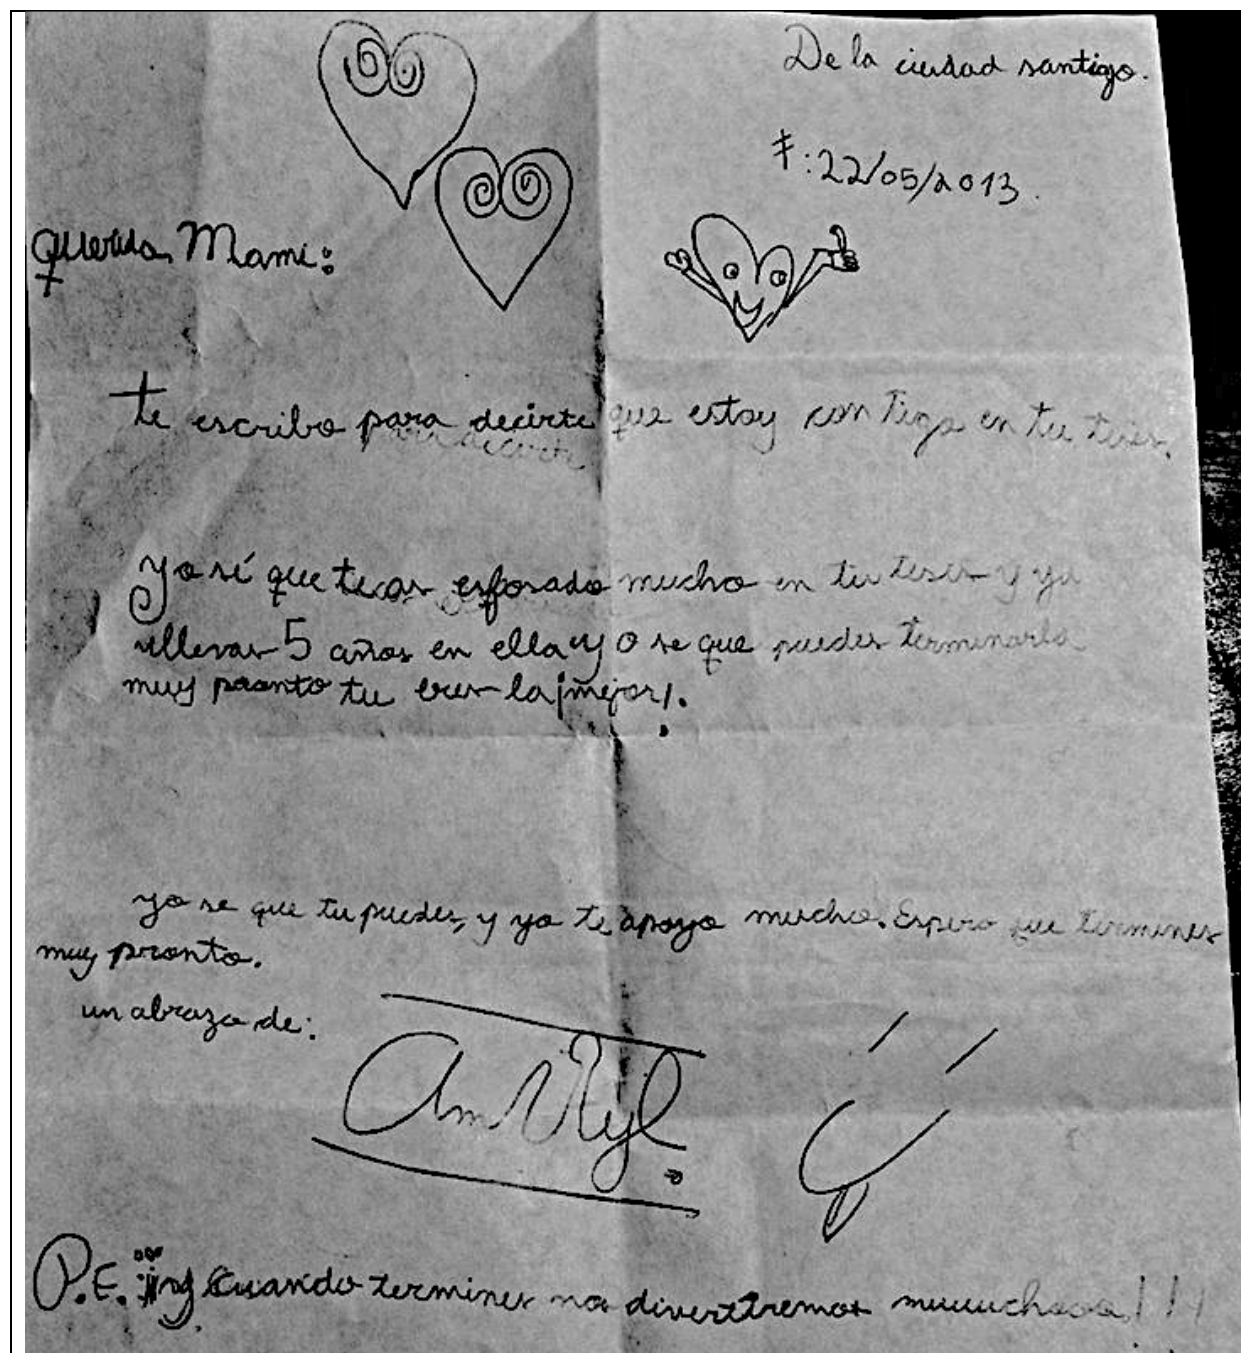 De la ciudad santigo.
F:22/05/2013.
Querida Mami:
te escribo para decirte que estoy con tigo en tu tesis.
Yo sí que te as esforsado mucho en tu tesis y ya
llevas 5 años en ella y o se que puedes terminarla
muy pronto tu eres la ¡mejor!.
yo se que tu puedes, y yo te apoyo mucho. Espero que termines
muy pronto.
un abrazo de:
P.E. Cuando termines no divertiremos muuuuchooo!!!